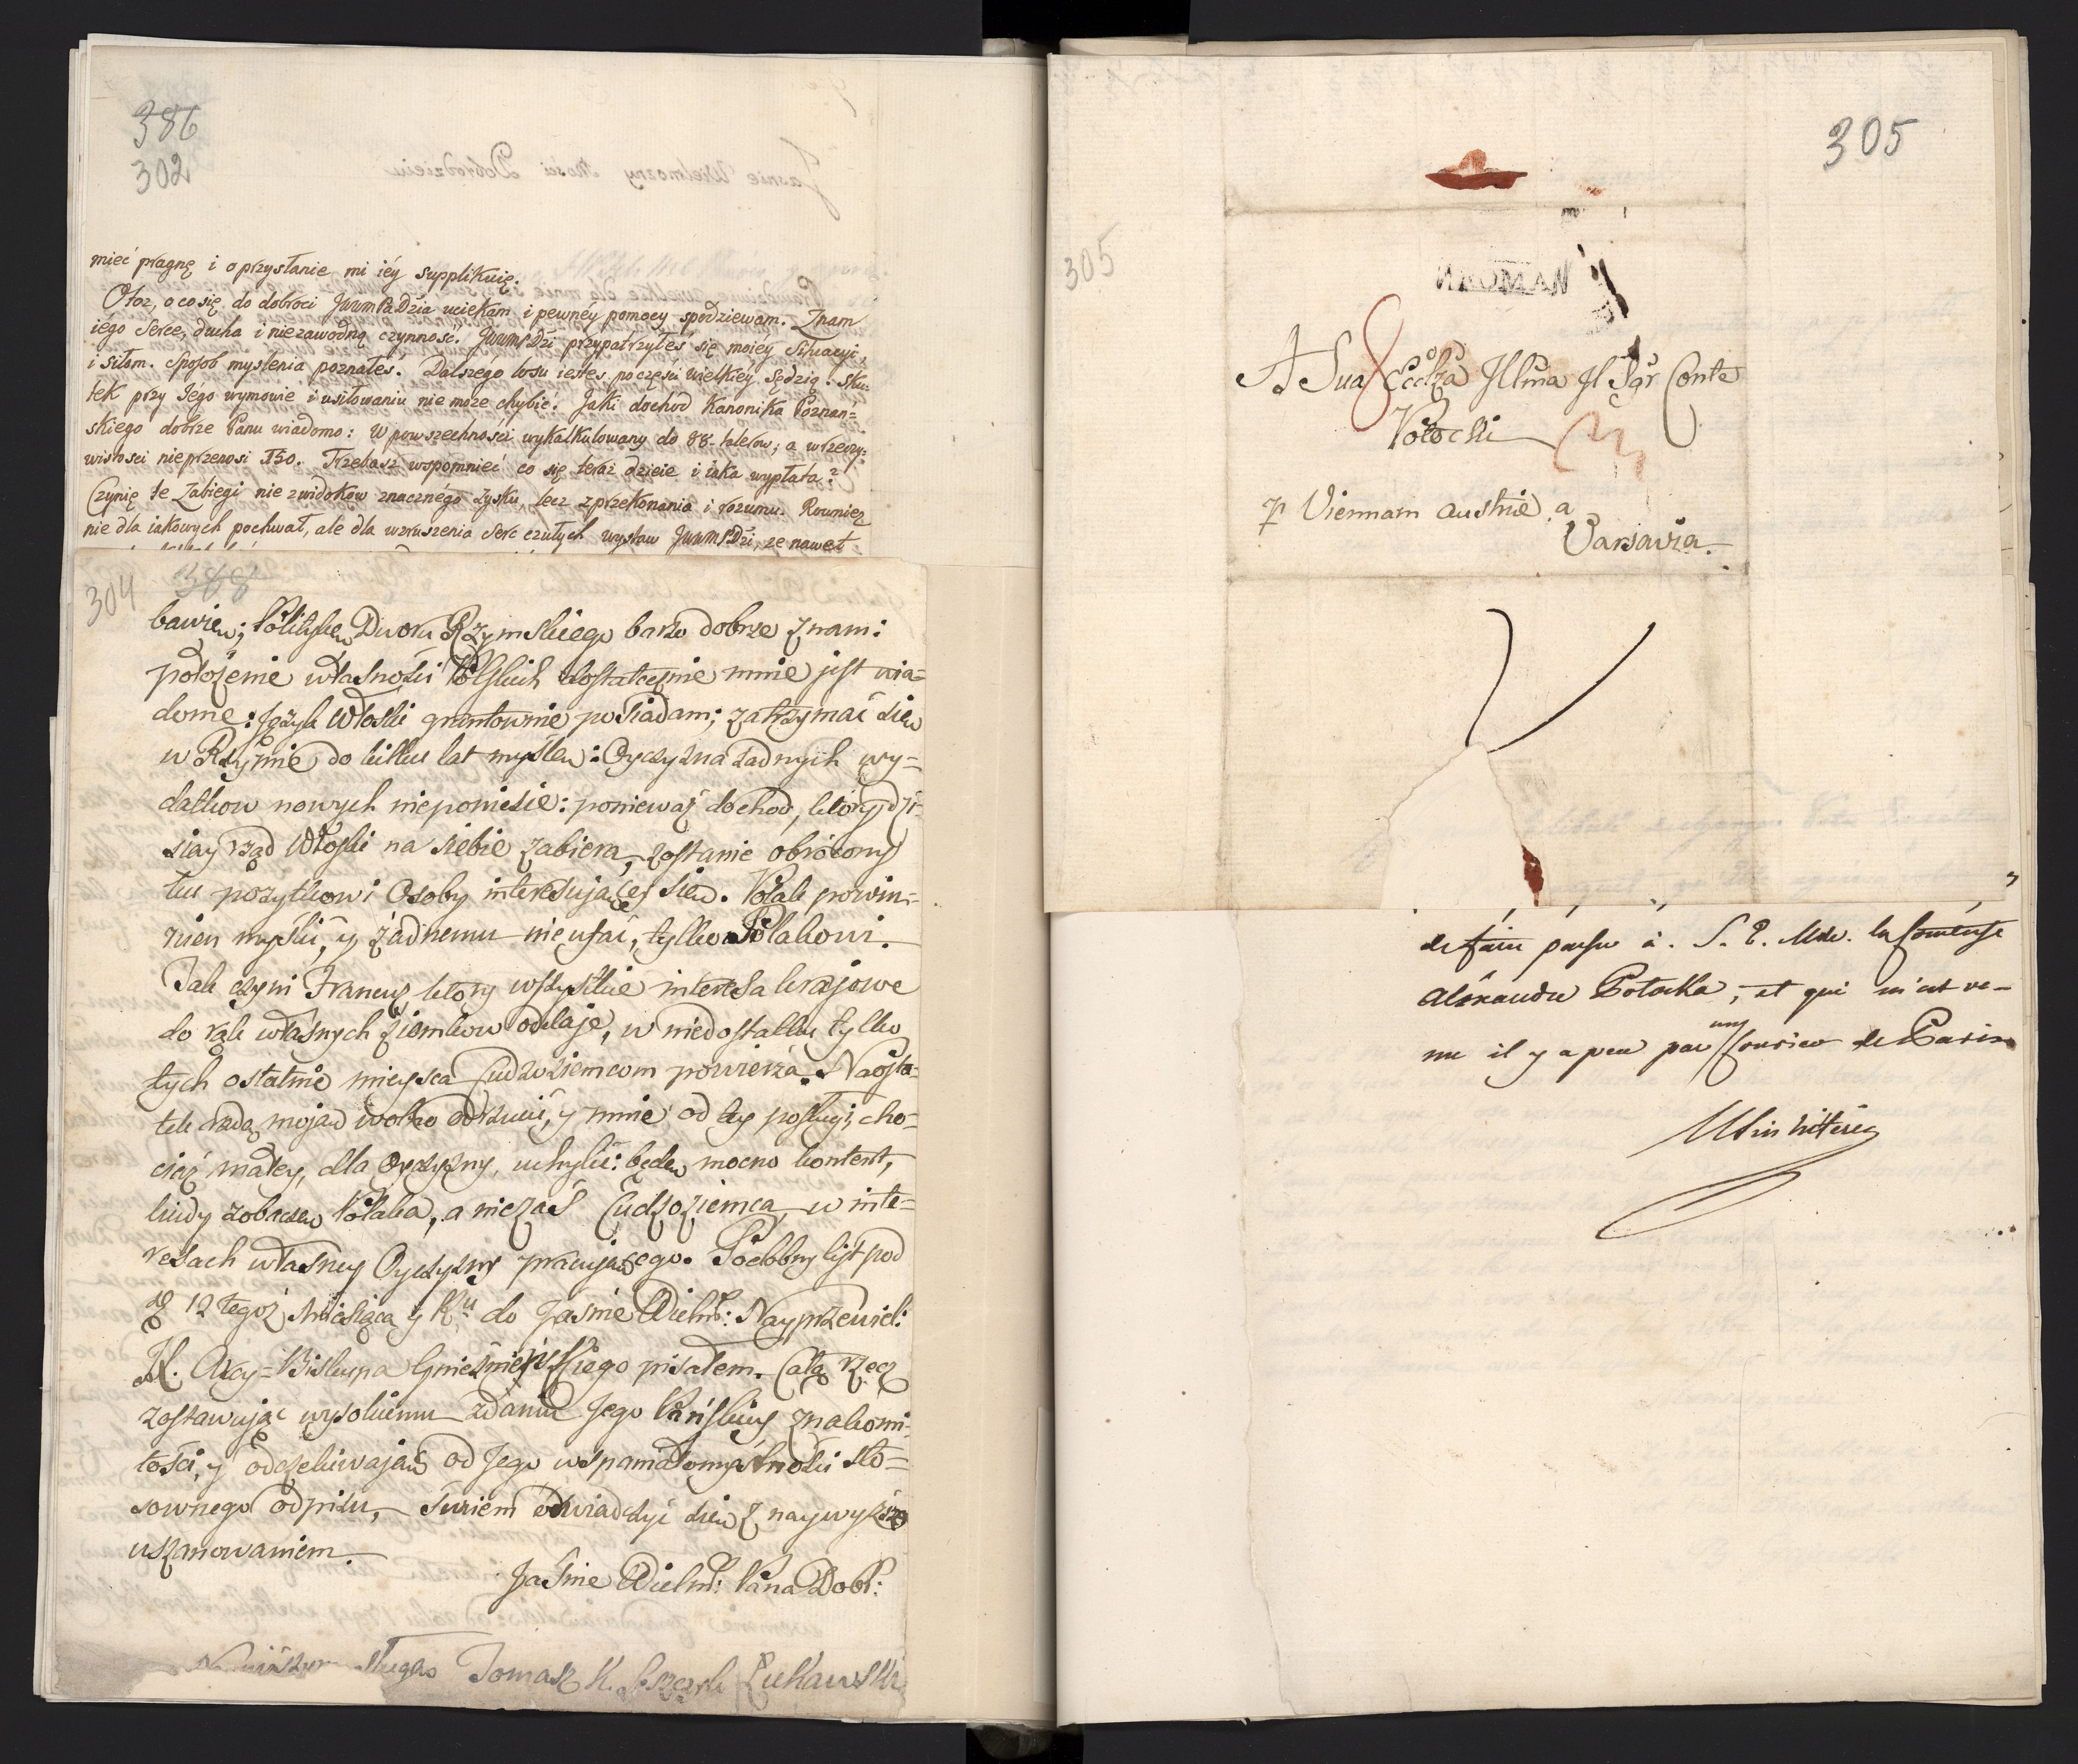 386
302
mieć pragnę i o przysłanie mi iéy supplikuię.
Otoz, o co się do dobroci JWWMPaDzia uciekam i pewnéy pomocy spodziewam. Znam
iégo Serce, ducha i niezawodną czynność. JWWMPDzi przypatrzyłeś się moiéy Situacyi,
i siłom. Sposob myslenia poznałeś. Dalszégo losu iesteś po części wielkiéy Sędzią. Sku:
tek przy Jégo wymowie i usiłowaniu nie może chybić. Jaki dochod Kanonika Poznań=
skiego dobrze Panu wiadomo: W powszechności wykalkulowany do 88. talerów; a w rzeczy:
wistości nieprzenosi 150. Trzebasz wspomnieć co się teraz dzieie i iaka wypłata?
Czynię te Zabiegi nie z widokow znacznégo zysku, lecz z przekonania i rozumu. Rownież
nie dla iakowych pochwał, ale dla wzruszenia Serc czułych wystaw JWWMPDzi, ze nawet
304 388
bawiew; Politykew Dworu Rzymskiego barzo dobrze znam:
położenie własności Polskich dostatecznie mnie jest wia=
dome: Język Włoski gruntownie posiadam; zatrzymać siew
w Rzymie do kilku lat myślew: Oyczyzna żadnych wy=
datkow nowych nieponiesie: poniewaź dochod, ktory dzi=
siay rząd Włoski na siebie zabiera, zostanie obrócony
ku pożytkowi Osoby interesującey siew. Polak powin=
nien myślić, y źadnemu nie ufać, tylko Polakowi.
Tak czyni Francuz ktory wszystkie interesa krajowe
do rąk własnych ziomkow oddaje, w niedostatku tylko
tych ostatnie mieysca Cudzoziemcom powierza. Naosta=
tek radą mojaw wolno odrzucić, y mnie od tey posługi, cho=
ciąź małey, dla Oyczyzny, uchylić: będew mocno kontent,
kiedy zobaczew Polaka, a niezaś Cudzoziemca w inte=
resach własney Oyczyzny pracującego. Podobny list pod
d. 12 tegoź Miesiąca y Ru do Jaśnie Wielm: Nayprzewiel:
X. Arcy=Biskupa Gnieźnieńskiego pisałem. Całą rzecz
zostawując wysokiemu zdaniu Jego Pańskiey znakomi=
tości, y odczekiwając od Jego wspaniałomyślności sto=
sownego odpisu, śmiem oświadczyć siew z naywyższe
uszanowaniem.
Jaśnie Wielm: Pana Dobr:
sługa Tomasz K. Łukawski
305
305
A Sua Eccłza Jllma Jl Sgr Conte
Potocki
p Viennam Austriæ a
Varsavia.
de faire passer à S. E. Mde. la Comtesse
Alexandre Potocka, et qui m'est ve-
nue il y a peu par un Courier de Paris